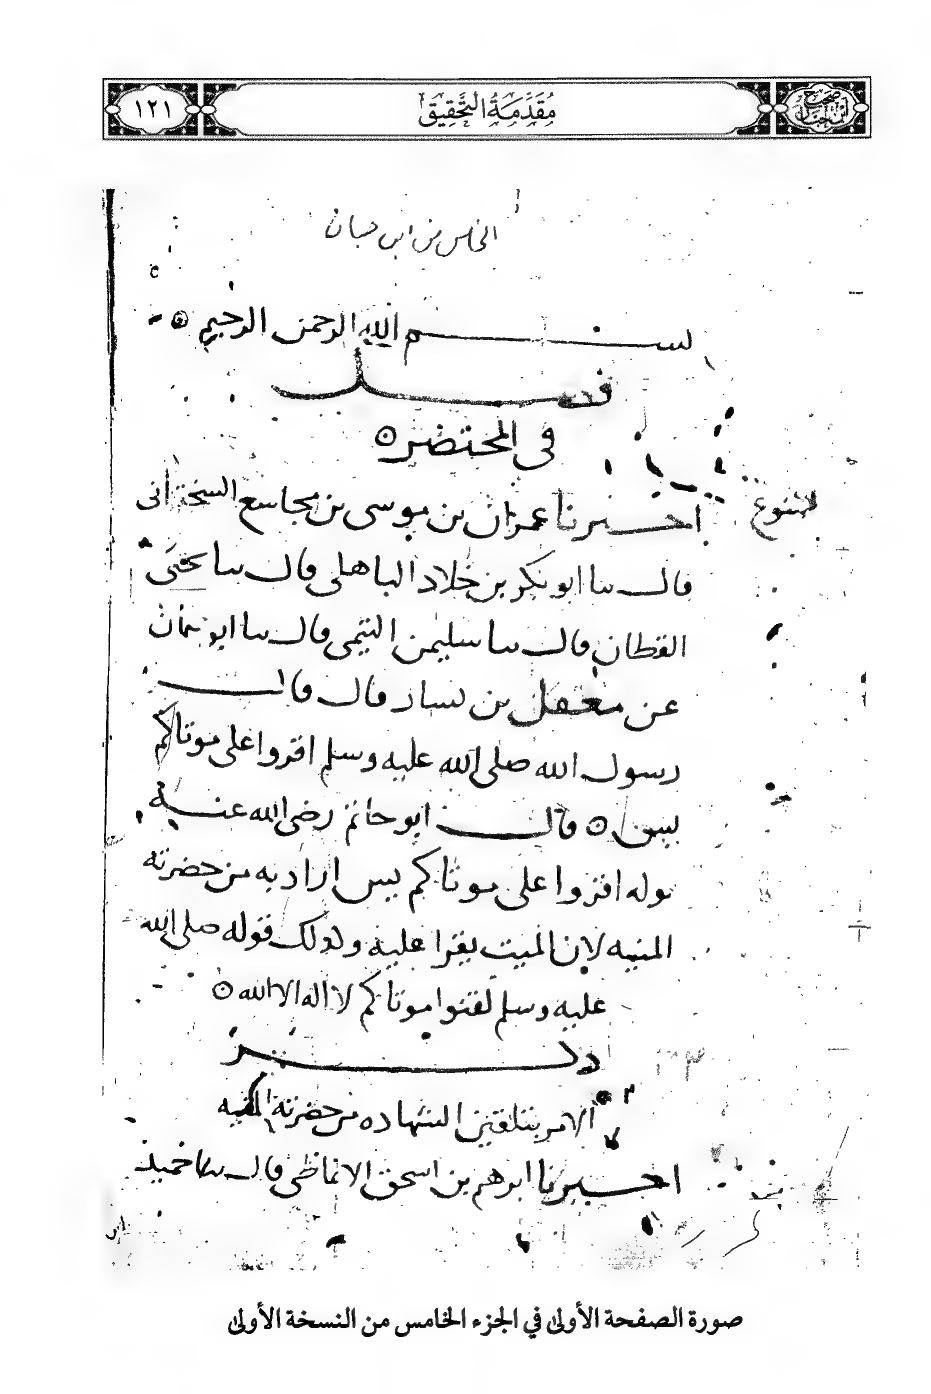 صحيح ابن حبان
مُقَدِّمَةُ التَّحْقِيقِ
١٢١
الخامس من ابن حبان
بسم الله الرحمن الرحيم
فصل
في المحتضر
اخبرنا عمران بن موسى بن مجاشع السختياني
قال سا ابو بكر بن خلاد الباهلي قال سا يحيى
القطان قال سا سليمن التيمي قال سا ابو عثمان
عن معقل بن يسار قال قال
رسول الله صلى الله عليه وسلم اقروا على موتاكم
يس قال ابو حاتم رضي الله عنه
قوله اقروا على موتاكم يس اراد به من حضرته
المنيه لان الميت يقرا عليه وكذلك قوله صلى الله
عليه وسلم لقنوا موتاكم لا اله الا الله
ذكر
الامر بتلقين الشهاده من حضرته المنيه
اخبرنا ابرهيم بن اسحق الانماطي قال سا حميد
صورة الصفحة الأولى في الجزء الخامس من النسخة الأولى